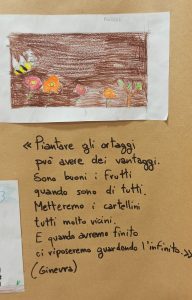 « Piantare gli ortaggi
può avere dei vantaggi.
Sono buoni i frutti
quando sono di tutti.
Metteremo i cartellini
tutti molto vicini.
E quando avremo finito
ci riposeremo guardando l'infinito.»
(Ginevra)